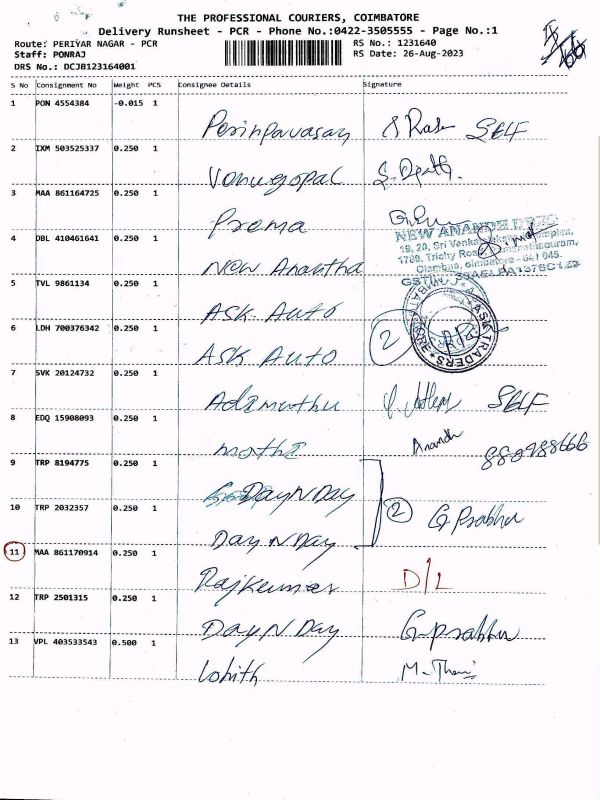 THE PROFESSIONAL COURIERS, COIMBATORE
Delivery Runsheet - PCR - Phone No.:0422-3505555 - Page No.:1
Route: PERIYAR NAGAR - PCR RS No.: 1231640
Staff: PONRAJ RS Date: 26-Aug-2023
DRS No.: DCJB123164001
S No Consignment No Weight PCS Consignee Details Signature
1 PON 4554384 -0.015 1
SELF
2 IXM 503525337 0.250 1
Venugopal
3 MAA 861164725 0.250 1
Prema
NEW ANANDH
19, 20, Sri Venkatesa Complex,
4 DBL 410461641 0.250 1
1789, Trichy Road, Ramanathapuram,
New Anantha
5 TVL 9861134 0.250 1
ASK Auto
6 LDH 700376342 0.250 1
ASK TRADERS
ASK Auto 2
7 SVK 20124732 0.250 1
SELF
8 EDQ 15908093 0.250 1
Anandh
9 TRP 8194775 0.250 1
Day N Day
10 TRP 2032357 0.250 1
2 G Prabhu
Day N Day
11 MAA 861170914 0.250 1
Rajkumar D/L
12 TRP 2501315 0.250 1
Day N Day G Prabhu
13 VPL 403533543 0.500 1
Lohith